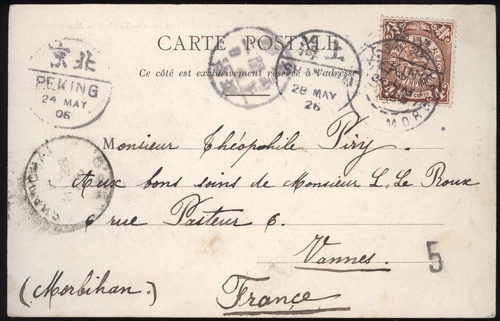 CARTE POSTALE
Ce côté est exclusivement réservé à l'adresse
北京
PEKING
24 MAY
06
上
28 MAY
26
MOR
Monsieur Théophile Piry.
Aux bons soins de Monsieur L. Le Roux
6 rue Pasteur 6.
Vannes.
(Morbihan.)
France
5